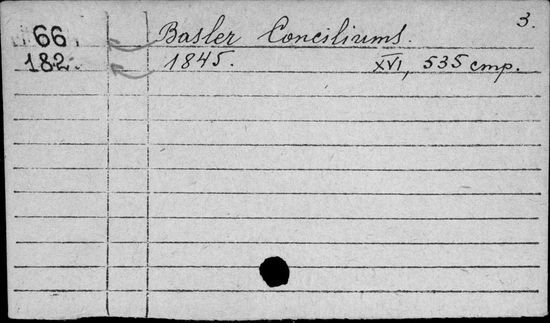 3.
66 Basler Conciliums.
182 1845. XVI, 535 стр.